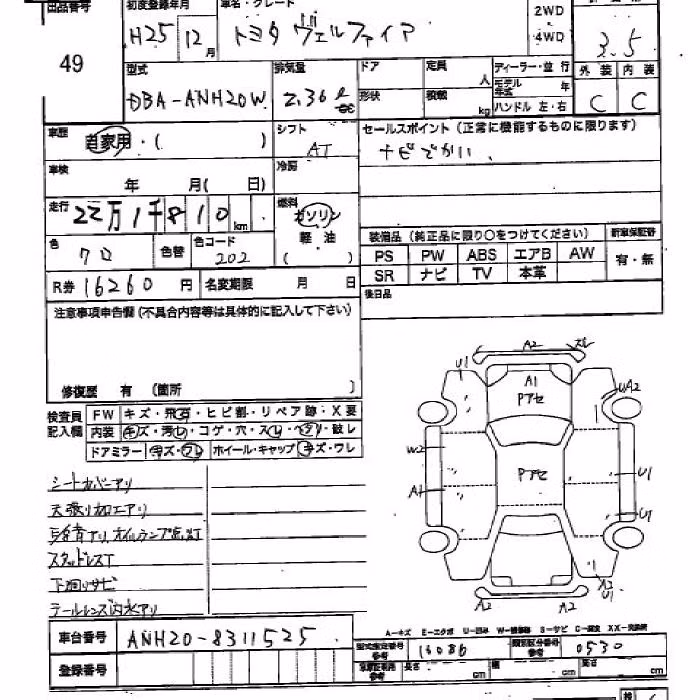 出品番号 初度登録年月 車名・グレード 2WD
49 H25 12月 トヨタ ヴェルファイア 4WD 3.5
型式 排気量 ドア 定員 人 ディーラー・並行 外装 内装
DBA-ANH20W 2.36ℓ 形状 積載 kg モデル年式 年 ハンドル 左・右 C C
車歴 自家用・( ) シフト AT セールスポイント (正常に機能するものに限ります)
車検 年 月( 日) 冷房 ナビでかい、
走行 22万1千810km 燃料 ガソリン 軽油 ( )
色 クロ 色替 色コード 202
装備品 (純正品に限り○をつけてください) 新車保証書
PS PW ABS エアB AW 有・無
SR ナビ TV 本革
R券 16260円 名変期限 月 日 後日品
注意事項申告欄 (不具合内容等は具体的に記入して下さい)
修復歴 有 (箇所 )
検査員記入欄 FW キズ・飛石・ヒビ割・リペア跡・X要
内装 キズ・汚レ・コゲ・穴・スレ・ヘタリ・破レ
ドアミラー キズ・ワレ ホイール・キャップ キズ・ワレ
シートカバーアリ
天張り加工アリ
異音アリ オイルランプ点灯
スタッドレスT
下回りサビ
テールレンズ内水アリ
A2 ズレ
U1 A1 Pアセ UA2
W2 Pアセ U1
A1 U1
A2 A2 A2 U1
A-キズ E-エクボ U-凹み W-補修跡 S-サビ C-腐食 XX-交換済
車台番号 ANH20-8311525 型式指定番号 参考 16086 類別区分番号 参考 0530
登録番号 長さ cm 幅 cm 高さ cm